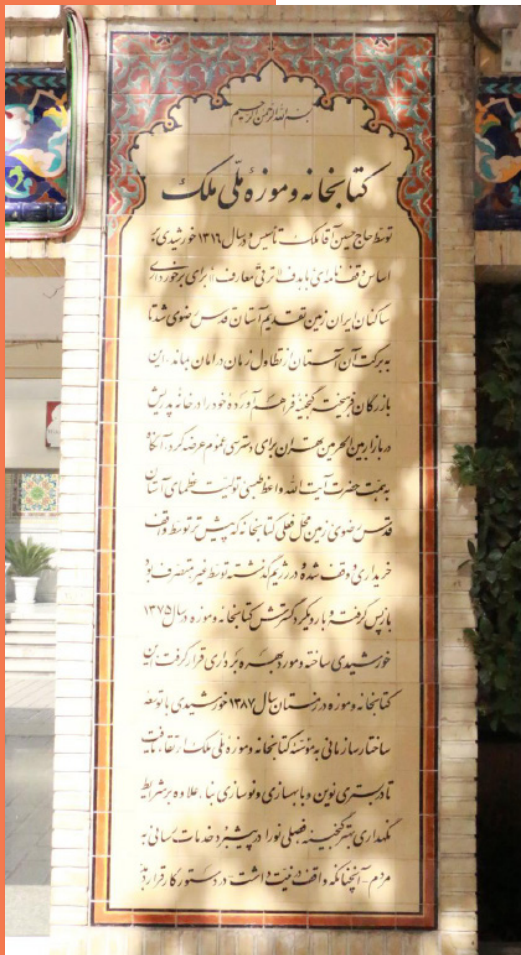 بسم الله الرحمن الرحیم
کتابخانه و موزهٔ ملّی ملک
توسط حاج حسین آقا ملک تأسیس و در سال ۱۳۱۶ خورشیدی بر
اساس وقف نامه‌ای با هدف ترقی معارف و برای برخورداری
ساکنان ایران زمین تقدیم آستان قدس رضوی شد تا
به برکت آن آستان از تطاول زمان در امان بماند. این
بازرگان فرهیخته گنجینه فراهم آورده خود را در خانه پدریش
در بازار بین الحرمین تهران برای دسترسی عموم عرضه کرد، آنگاه
به همت حضرت آیت الله واعظ طبسی تولیت عظمای آستان
قدس رضوی زمین محل فعلی کتابخانه که پیش تر توسط واقف
خریداری و وقف شده و در رژیم گذشته توسط غیر متصرف بود
بازپس گرفته و بار دیگر گسترش کتابخانه و موزه در سال ۱۳۷۵
خورشیدی ساخته و مورد بهره برداری قرار گرفت. این
کتابخانه و موزه در زمستان سال ۱۳۸۷ خورشیدی با توسعه
ساختار سازمانی به مؤسسه کتابخانه و موزه ملی ملک ارتقاء یافت
تا در بستری نوین و با بهسازی و نوسازی بنا، علاوه بر شرایط
نگهداری بهتر گنجینه، فصلی نو را در پیشبرد خدمات رسانی به
مردم - آنچنانکه واقف در نیت داشت - در دستور کار قرار دهد